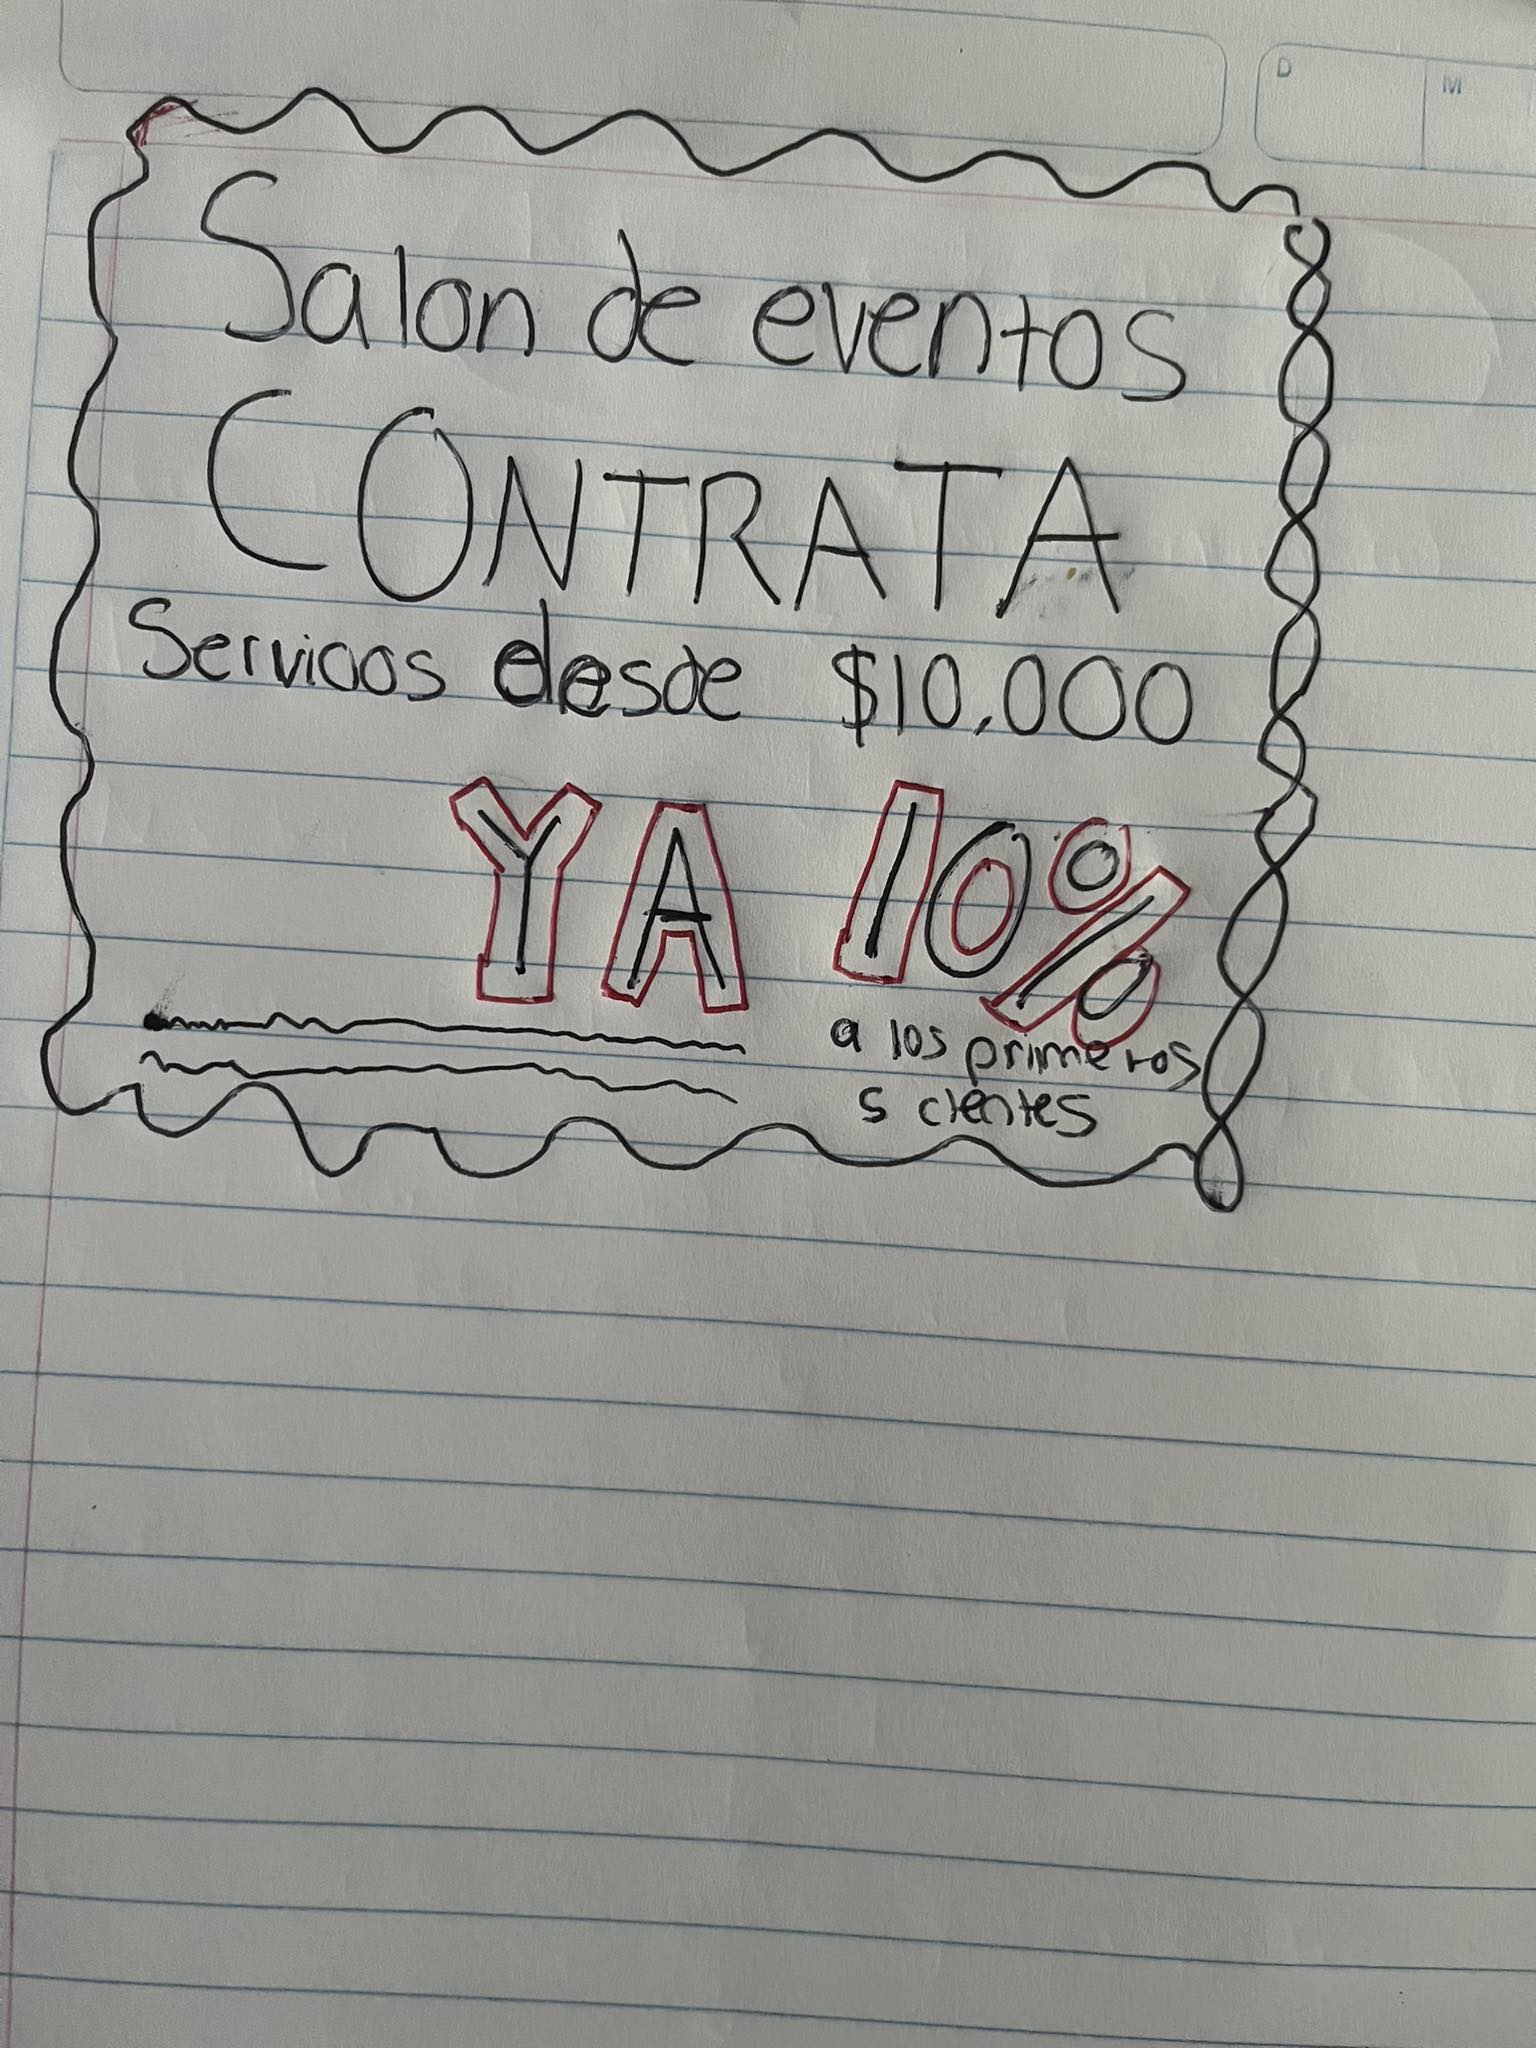 D M
Salon de eventos
CONTRATA
Servicios desde $10,000
YA 10%
a los primeros
5 clentes